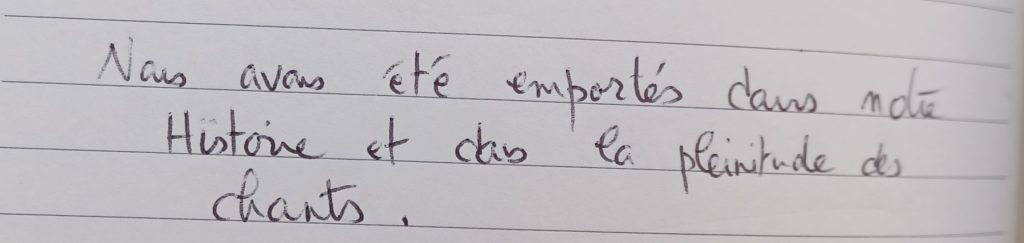 Nous avons été emportés dans notre
Histoire et dans la pleinitude des
chants.